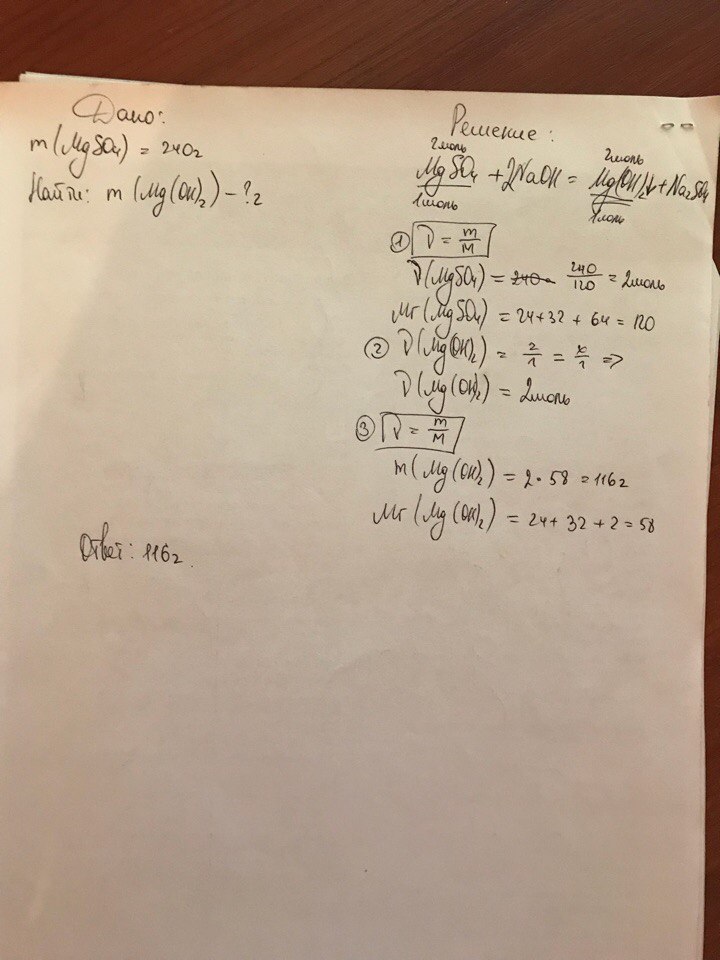 Дано:
m(MgSO4) = 240г
Найти: m(Mg(OH)2) - ? г
Решение:
2моль 2моль
MgSO4 + 2NaOH = Mg(OH)2↓ + Na2SO4
1моль 1моль
① ν = m/M
ν(MgSO4) = 240/120 = 2моль
Mr(MgSO4) = 24+32+64 = 120
② ν(Mg(OH)2) = 2/1 = x/1 =>
ν(Mg(OH)2) = 2моль
③ ν = m/M
m(Mg(OH)2) = 2·58 = 116г
Mr(Mg(OH)2) = 24+32+2 = 58
Ответ: 116г.